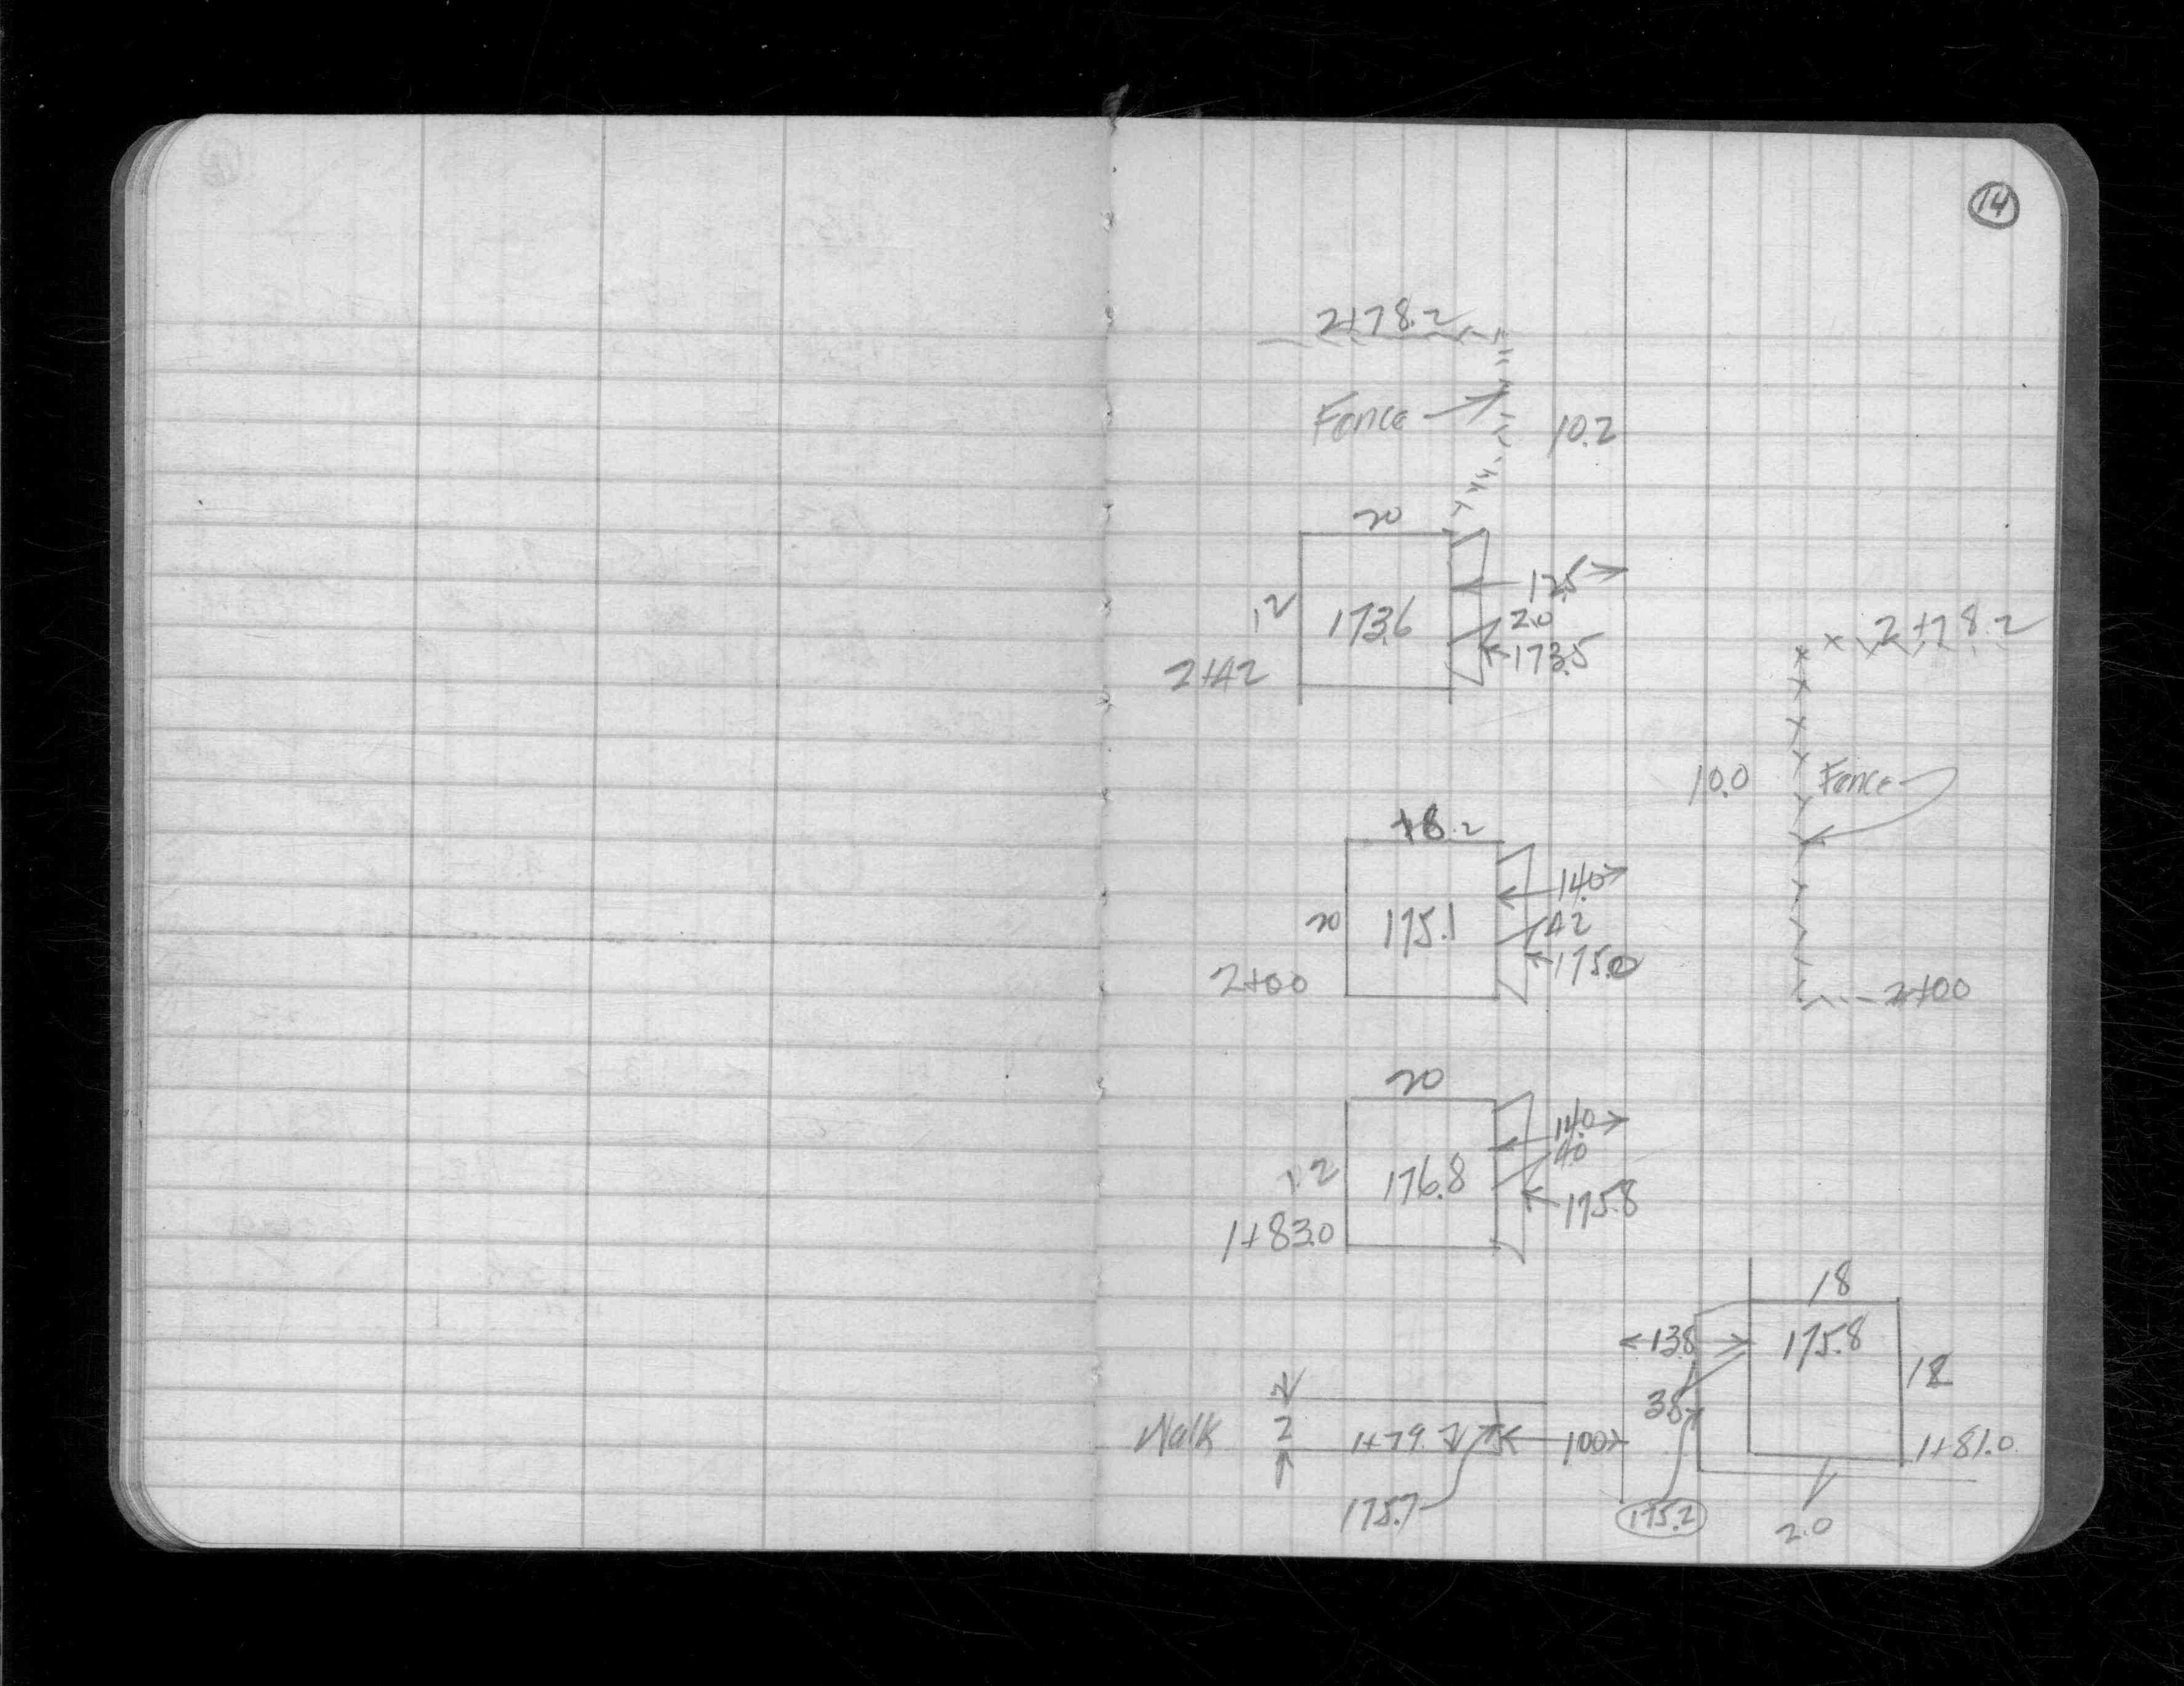 14
2+78.2
Fence
10.2
20
12.5
12
173.6
2.0
173.5
2+42
2+78.2
10.0
Fence
18.2
14.0
20
175.1
4.2
175.0
2+00
2+00
20
14.0
12
176.8
4.0
175.8
1+83.0
18
13.8
175.8
18
3.8
Walk
2
1+79.7
10.0
1+81.0
175.7
175.2
2.0